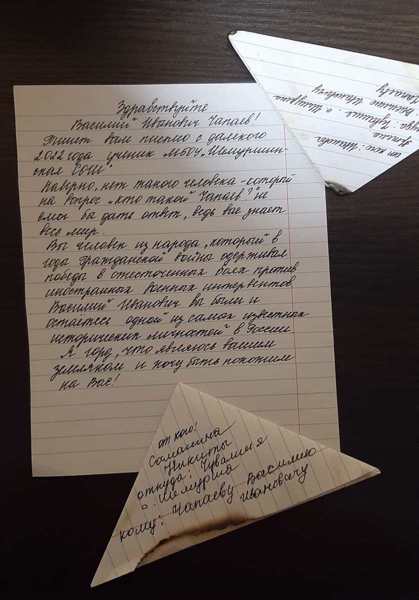 Здравствуйте
Василий Иванович Чапаев!
Пишет вам письмо с далекого
2022 года ученик МБОУ„Шемуршин-
ская СОШ"
Наверно, нет такого человека - который
на вопрос „кто такой Чапаев?" за
бы дать ответ, ведь вас знает
весь мир.
Вы человек из народа, который в
года Гражданской войны одерживал
победы в ожесточенных боях против
иностранных военных интервентов
Василий Иванович вы были и
остаетесь одной из самых известных
исторических личностей в России
Я горд, что являюсь вашим
земляком и хочу быть похожим
на Вас!
от кого:
Никиты
откуда: Чувашия
с. Шемурша
кому: Чапаеву Василию
Ивановичу